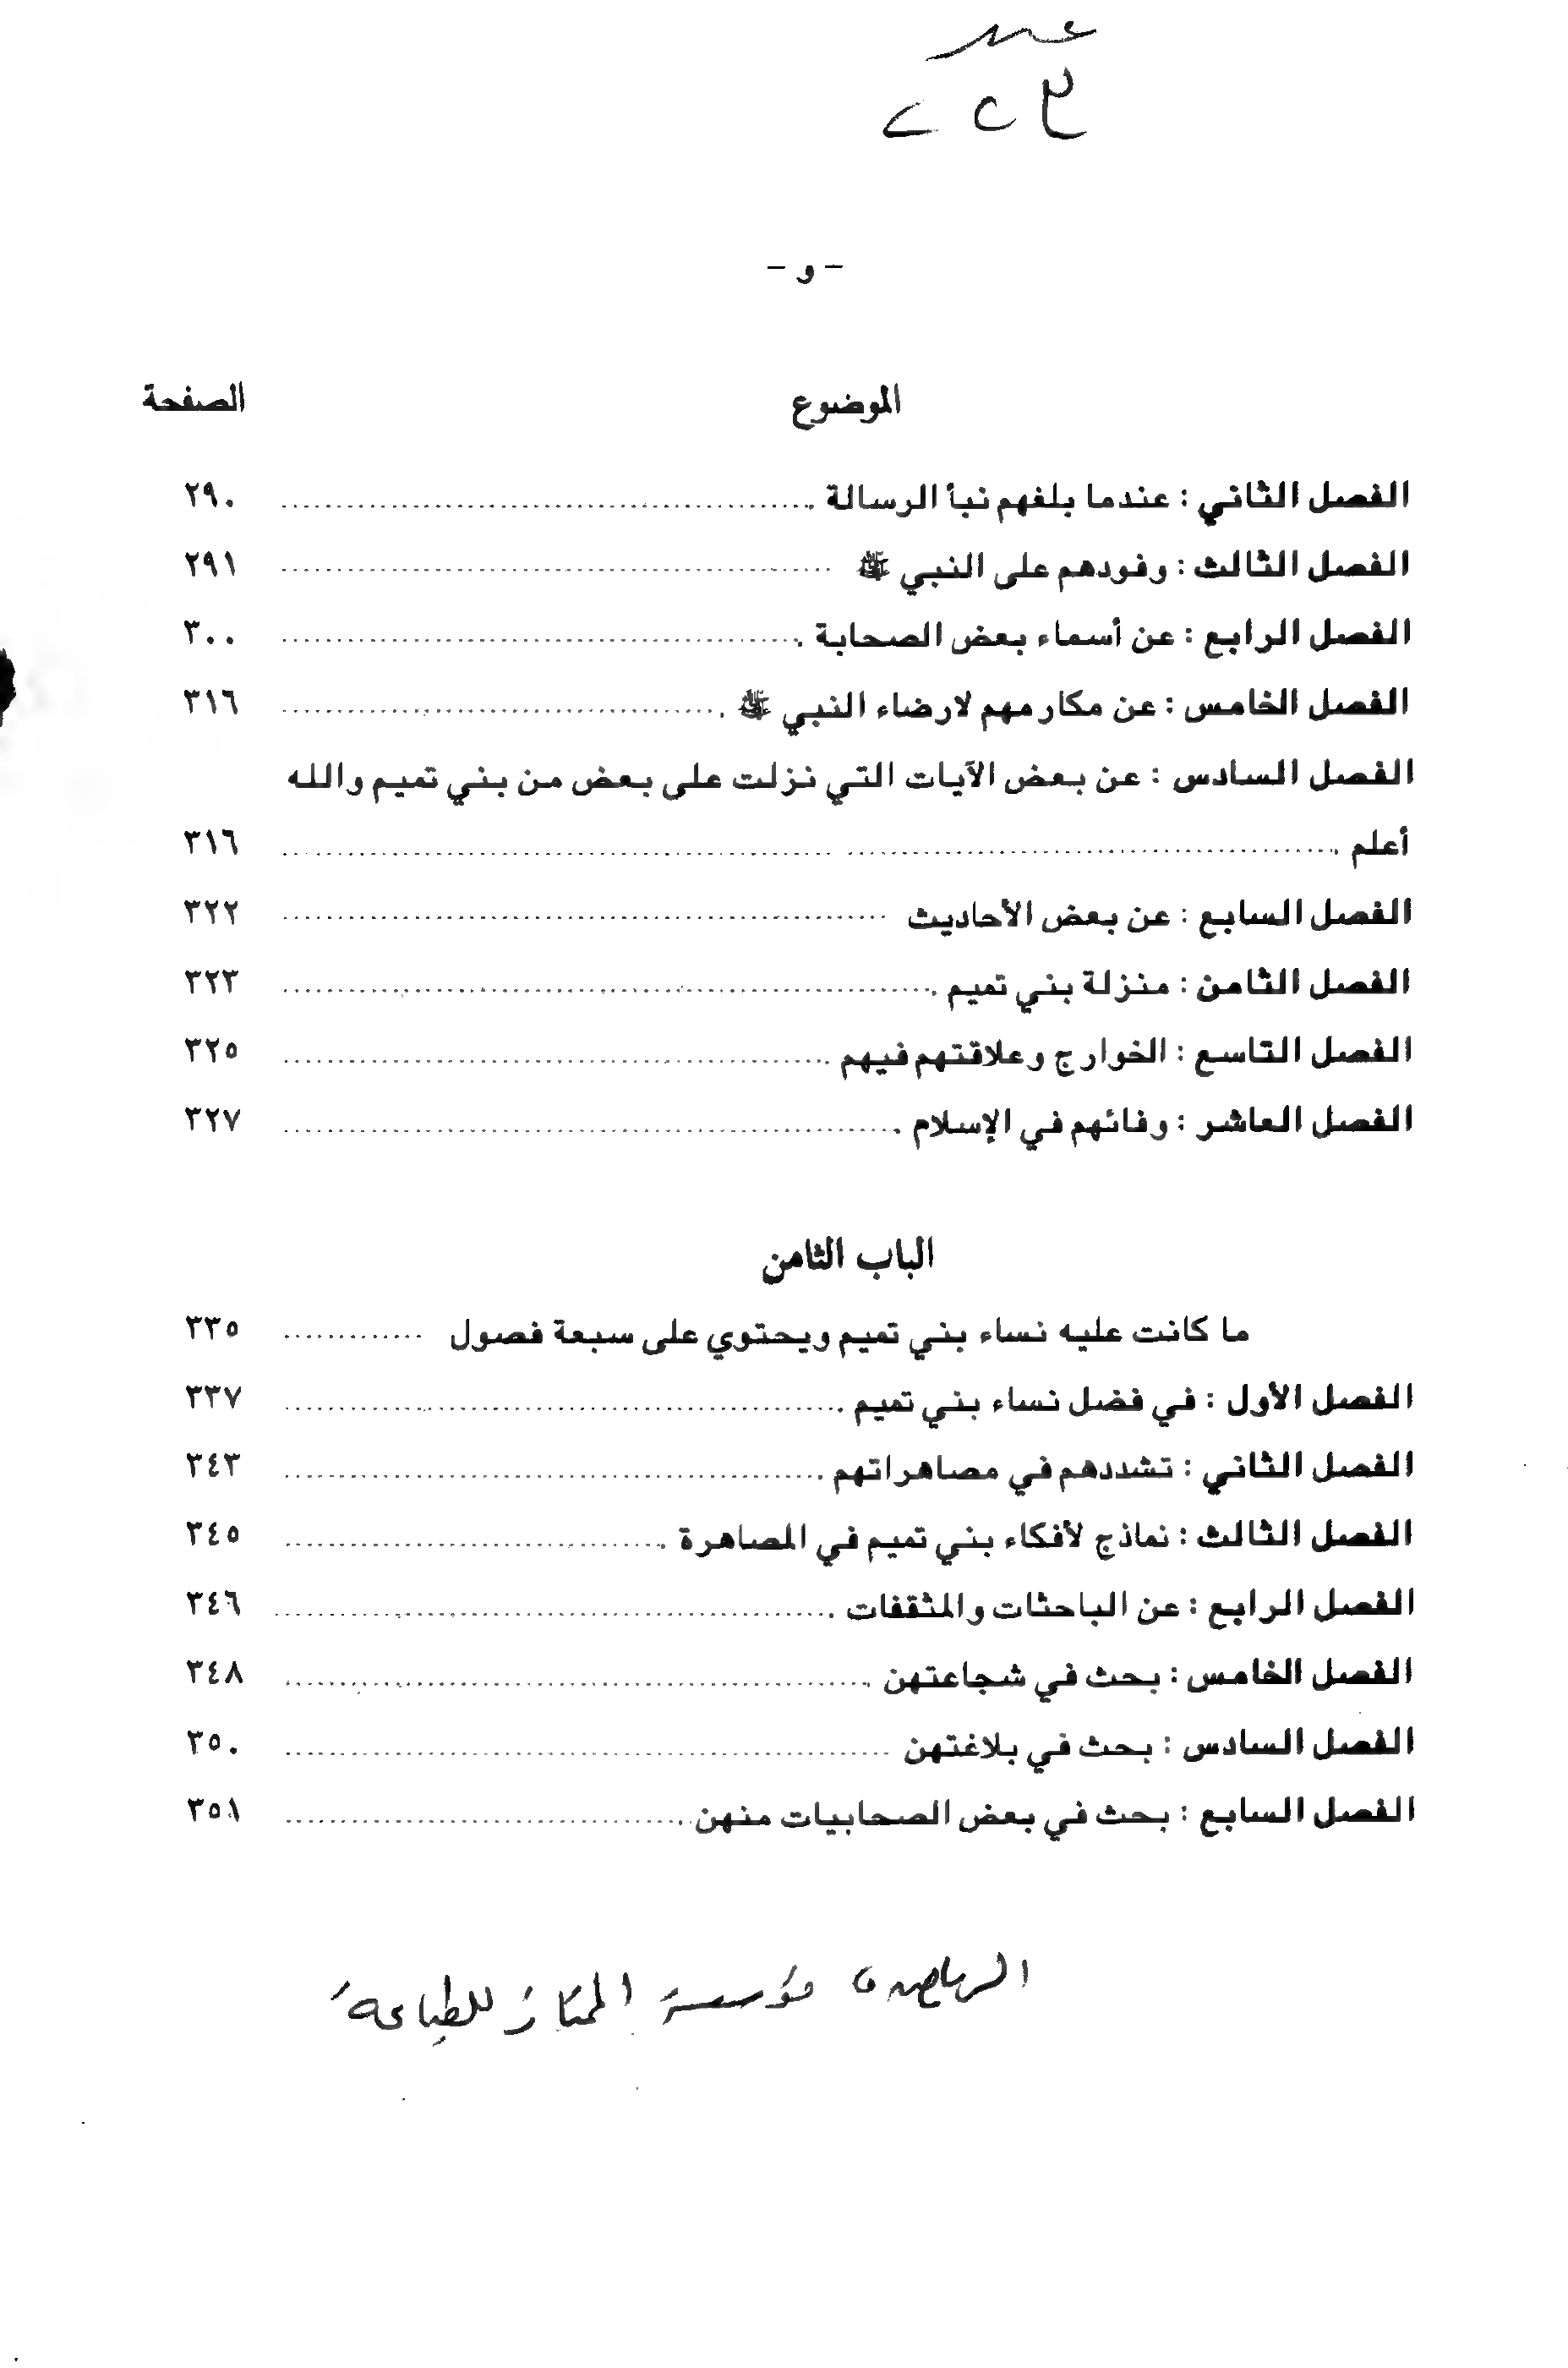 - و -
الموضوع الصفحة
الفصل الثاني : عندما بلغهم نبأ الرسالة . ٢٩٠
الفصل الثالث : وفودهم على النبي ﷺ ٢٩١
الفصل الرابع : عن أسماء بعض الصحابة . ٣٠٠
الفصل الخامس : عن مكارمهم لارضاء النبي ﷺ . ٣١٦
الفصل السادس : عن بعض الآيات التي نزلت على بعض من بني تميم والله
أعلم . ٣١٦
الفصل السابع : عن بعض الأحاديث ٣٢٢
الفصل الثامن : منزلة بني تميم . ٣٢٣
الفصل التاسع : الخوارج وعلاقتهم فيهم . ٣٢٥
الفصل العاشر : وفائهم في الإسلام . ٣٢٧
الباب الثامن
ما كانت عليه نساء بني تميم ويحتوي على سبعة فصول ٣٣٥
الفصل الأول : في فضل نساء بني تميم . ٣٣٧
الفصل الثاني : تشددهم في مصاهراتهم . ٣٤٣
الفصل الثالث : نماذج لأفكاء بني تميم في المصاهرة . ٣٤٥
الفصل الرابع : عن الباحثات والمثقفات . ٣٤٦
الفصل الخامس : بحث في شجاعتهن . ٣٤٨
الفصل السادس : بحث في بلاغتهن ٣٥٠
الفصل السابع : بحث في بعض الصحابيات منهن . ٣٥١
الرياض، مؤسسة الممتاز للطباعة